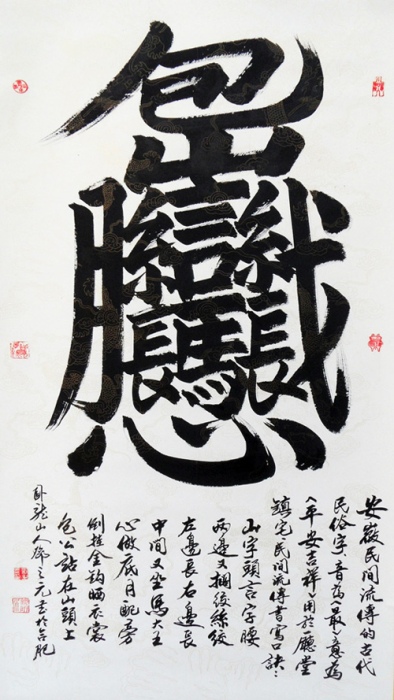 安徽民间流傳的古代
民俗字音为《最》意为
《平安吉祥》用於廳堂
鎮宅民间流傳書寫口訣：
山字頭言字腰
两邊又捆絞絲絞
左邊長右邊長
中间又坐馬大王
心做底月配旁
倒挂金鈎晒衣裳
包公站在山頭上
卧龍山人鄧之元書於合肥